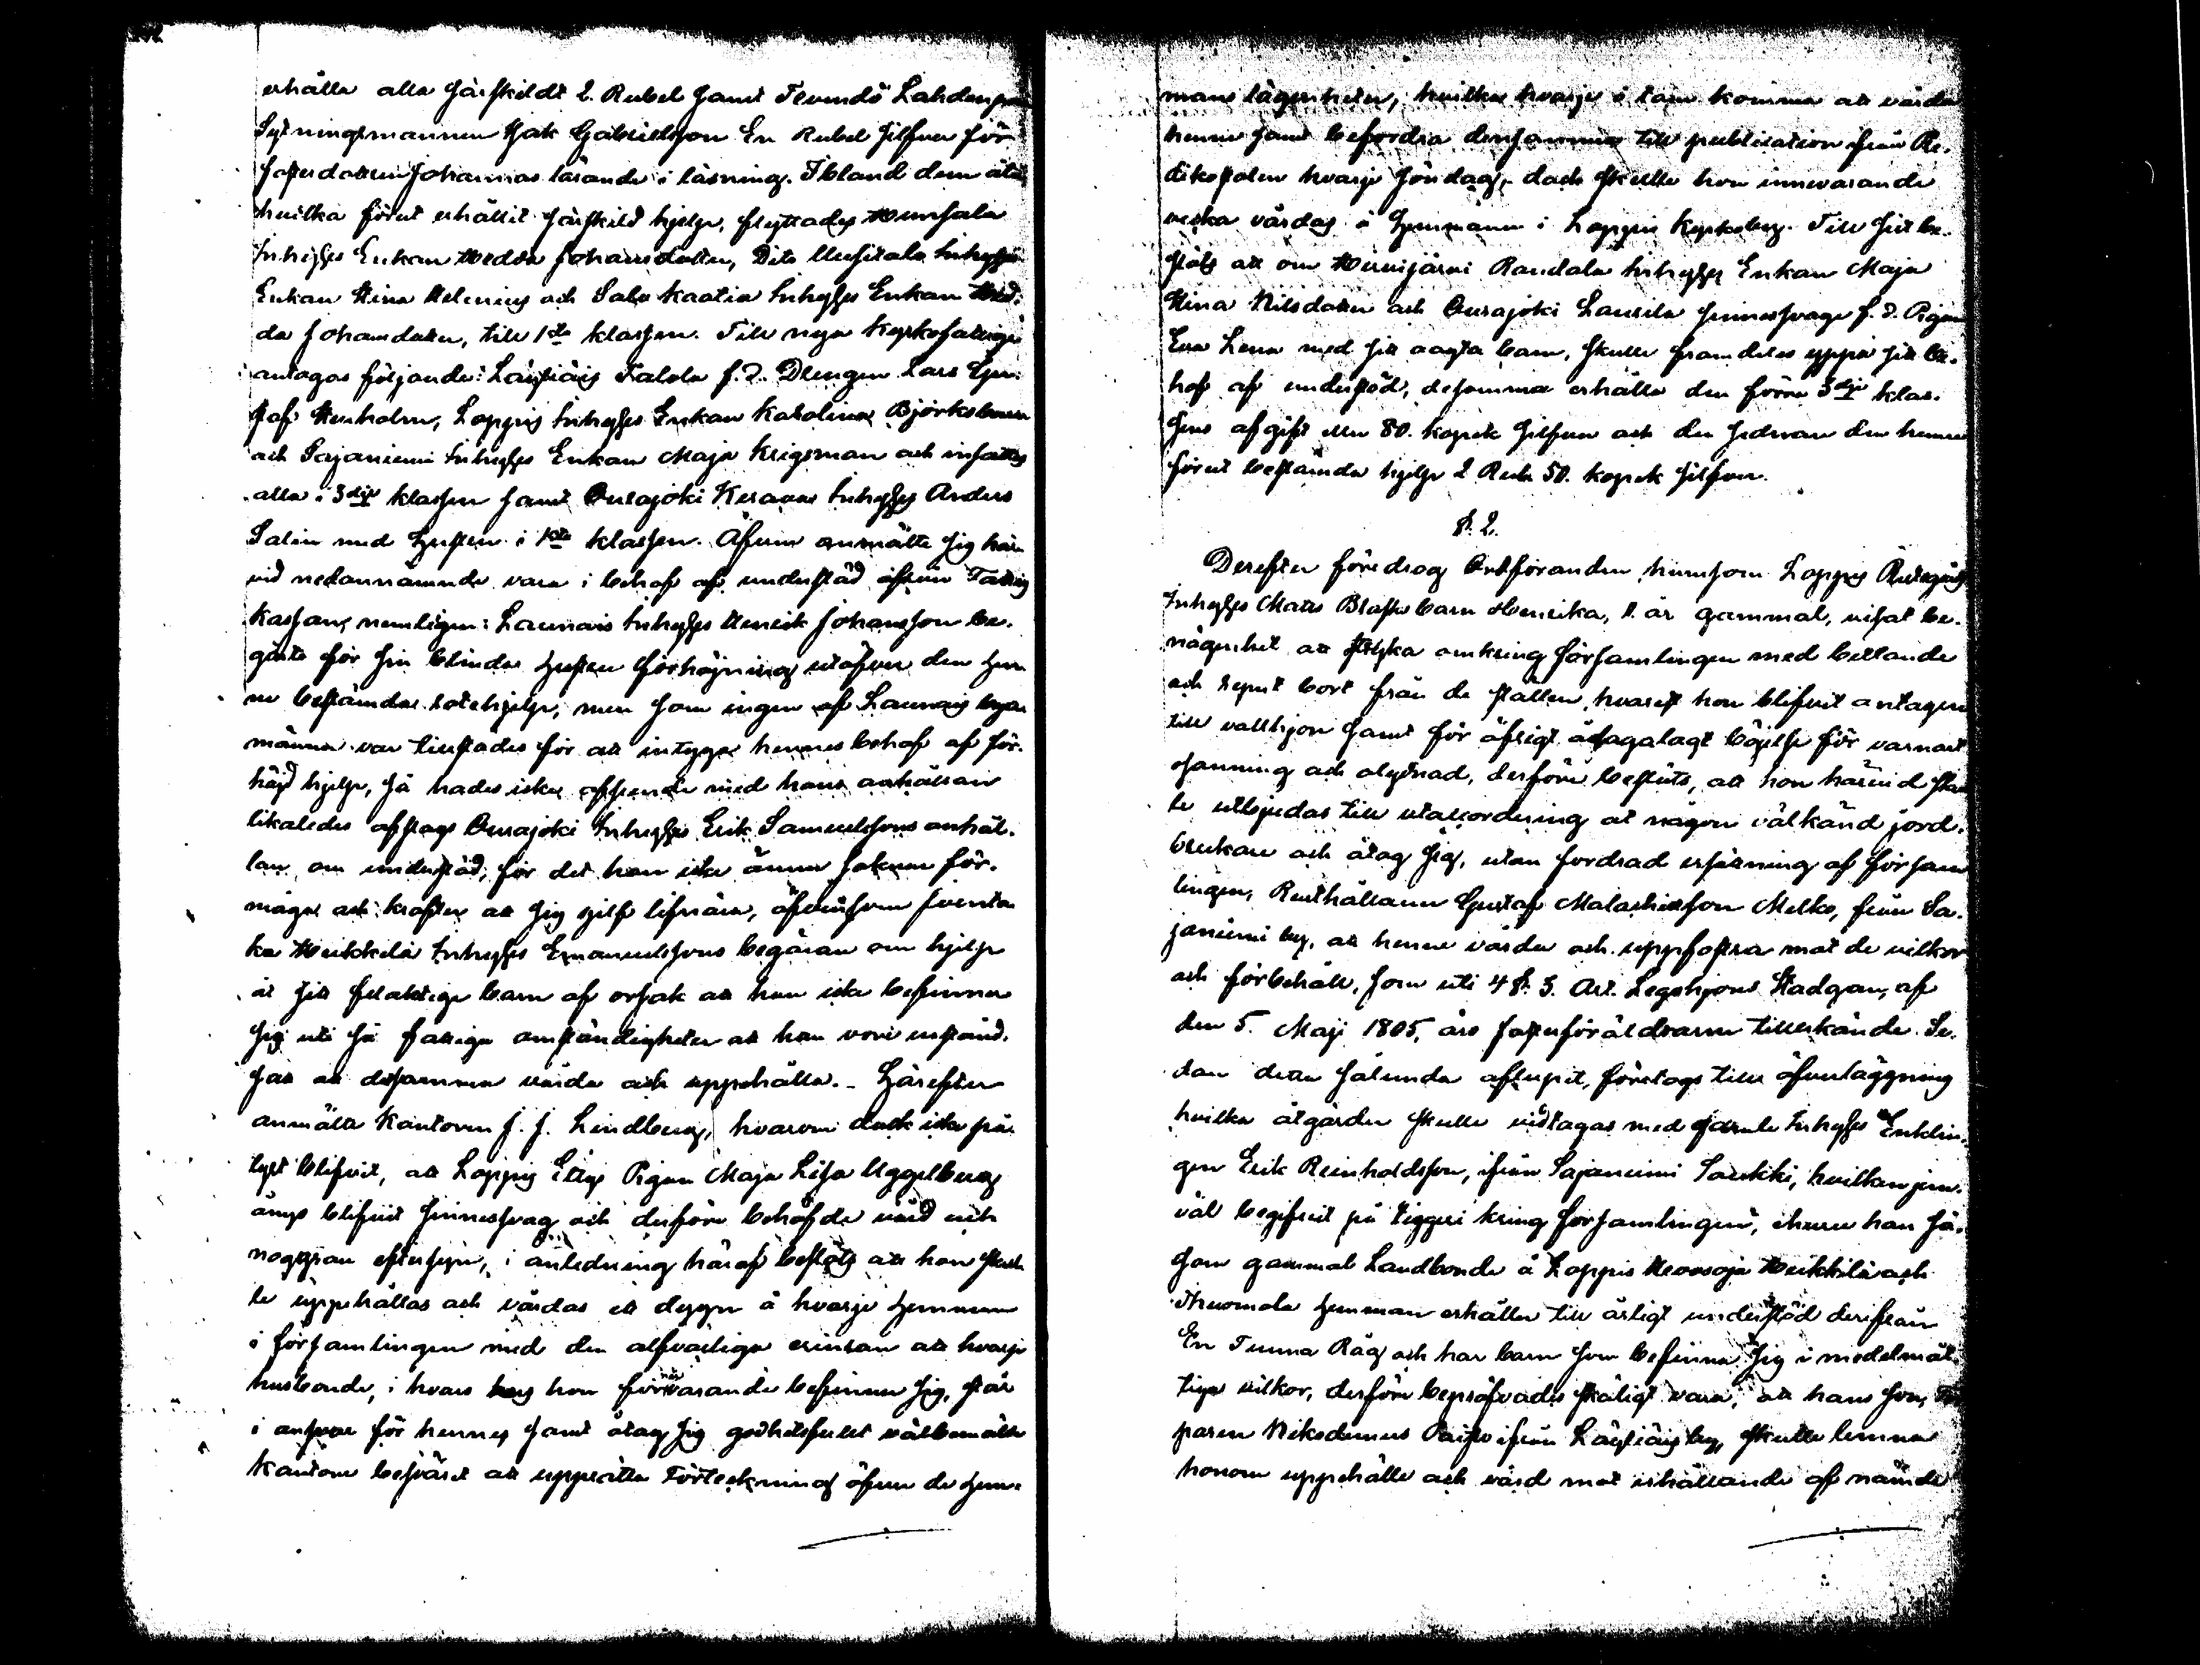 242
erhålla alla särskildt 2. Rubel samt Tevendö Lahdenpää
Sytningsmannen Isak Gabrielsson En Rubel silfver för
fosterdottren Johannas lärande i läsning. Ibland dem åter
hvilka förut erhållit särskild hjelp, flyttades Hunsala
Inhyses Enkan Hedda Johansdotter, Dito Uusitalo Inhyses
Enkan Stina Helenius och Salo Kaatia Inhyses Enkan Hed-
da Johansdotter, till 1sta klassen. Till nya kyrkofattige
antagas följande: Läyliäis Talola f. d. Drengen Lars Gu-
staf Stenholm, Loppis Inhyses Enkan Karolina Björkbom
och Sajaniemi Inhyses Enkan Maja Krigsman och insattes
alla i 3dje klassen samt Ourajoki Keravas Inhyses Anders
Salin med hustru i 1sta klassen. Äfven anmälte sig här-
vid nedannämnde vara i behof af understöd ifrån Fattig
kassan, nemligen: Launois Inhyses Henrik Johansson be-
gärte för sin blinda hustru förhöjning utöfver den hen-
ne bestämda rotehjelp, men som ingen af Launois bya-
männer var tillstädes för att intyga hennes behof af för-
höjd hjelp, så hades icke afseende med hans anhållan
likaledes afslogs Ourajoki Inhyses Erik Samuelssons anhål-
lan om understöd, för det han icke ännu saknar för-
måga och krafter att sig sjelf lifnära, äfvensom Joenta-
ka Heikkilä Inhyses Emanuelssons begäran om hjelp
åt sitt ofärdiga barn af orsak att han icke befinner
sig uti så fattiga omständigheter att han vore urstånd-
satt att detsamma vårda och uppehålla. – Härefter
anmälte Kantoren J. J. Lindberg, hvarom dock icke på-
lyst blifvit, att Loppis Pigan Maja Lisa Uggelberg
ånyo blifvit sinnessvag och derföre behöfde vård och
noggran eftersyn, i anledning häraf beslöts att hon skul-
le uppehållas och vårdas ett dygn å hvarje hemman
i församlingen med den alfvarliga erinran att hvarje
husbonde, i hvars hus hon förnärvarande befinner sig, står
i ansvar för henne, samt åtog sig godhetsfullt välbemälte
Kantor besväret att upprätta Förteckning öfver de hem-
mans lägenheter, hvilka hvarje i tour komma att vårda
henne samt befordra densamma till publication ifrån Pre-
dikostolen hvarje söndag, dock skulle hon innevarande
vecka vårdas å hemmanen i Loppis Kyrkoby. Till sist be-
slöts att om Hirvijärvi Rautala Inhyses Enkan Maja
Stina Nilsdotter och Ourajoki Laurila sinnessvage f. d. Pigan
Eva Lena med sitt oägta barn, skulle framdeles yppa sitt be-
hof af understöd, desamma erhålla den förra 3dje klas-
sens afgift eller 80. kopek silfver och den sednare den henne
förut bestämda hjelp 2 Rub. 50. kopek silfver.
§. 2.
Derefter föredrog Ordföranden hurusom Loppis
Inhyses Matts Blafs barn Henrika, år gammal, visat be-
nägenhet att stryka omkring församlingen med bettlande
och rymt bort från de ställen, hvarest hon blifvit antagen
till vallhjon samt för öfrigt ådagalagt böjelse för vanart
osanning och olydnad, derföre beslöts, att hon härvid skul-
le utbjudas till utaccordering åt någon välkänd jord-
brukare och åtog sig, utan fordrad ersättning af försam-
lingen, Rusthållaren Gustaf Malachiasson Melko, från Sa-
janiemi by, att henne vårda och uppfostra mot de vilkor
och förbehåll, som uti 4 §. 3. Art. Legohjons Stadgan, af
den 5. Maji 1805, äro fosterföräldrarne tillerkände. Se-
dan detta sålunda aflupit, företogs till öfverläggning
hvilka åtgärder skulle vidtagas med gamle Inhyses Enklin-
gen Erik Reinholdsson, ifrån Sajaniemi Saukki, hvilken jem-
väl begifvit på tiggeri kring församlingen, churu han så-
som gammal Landbonde å Loppis Heikkilä och
hemman erhåller till årligt understöd derifrån
En Tunna Råg och har barn som befinna sig i medelmåt-
tiga vilkor, derföre bepröfvades skäligt vara, att hans son, Tor-
paren Nikodemus ifrån Läyliäis by, skulle lemna
honom uppehälle och vård mot erhållande af nämde